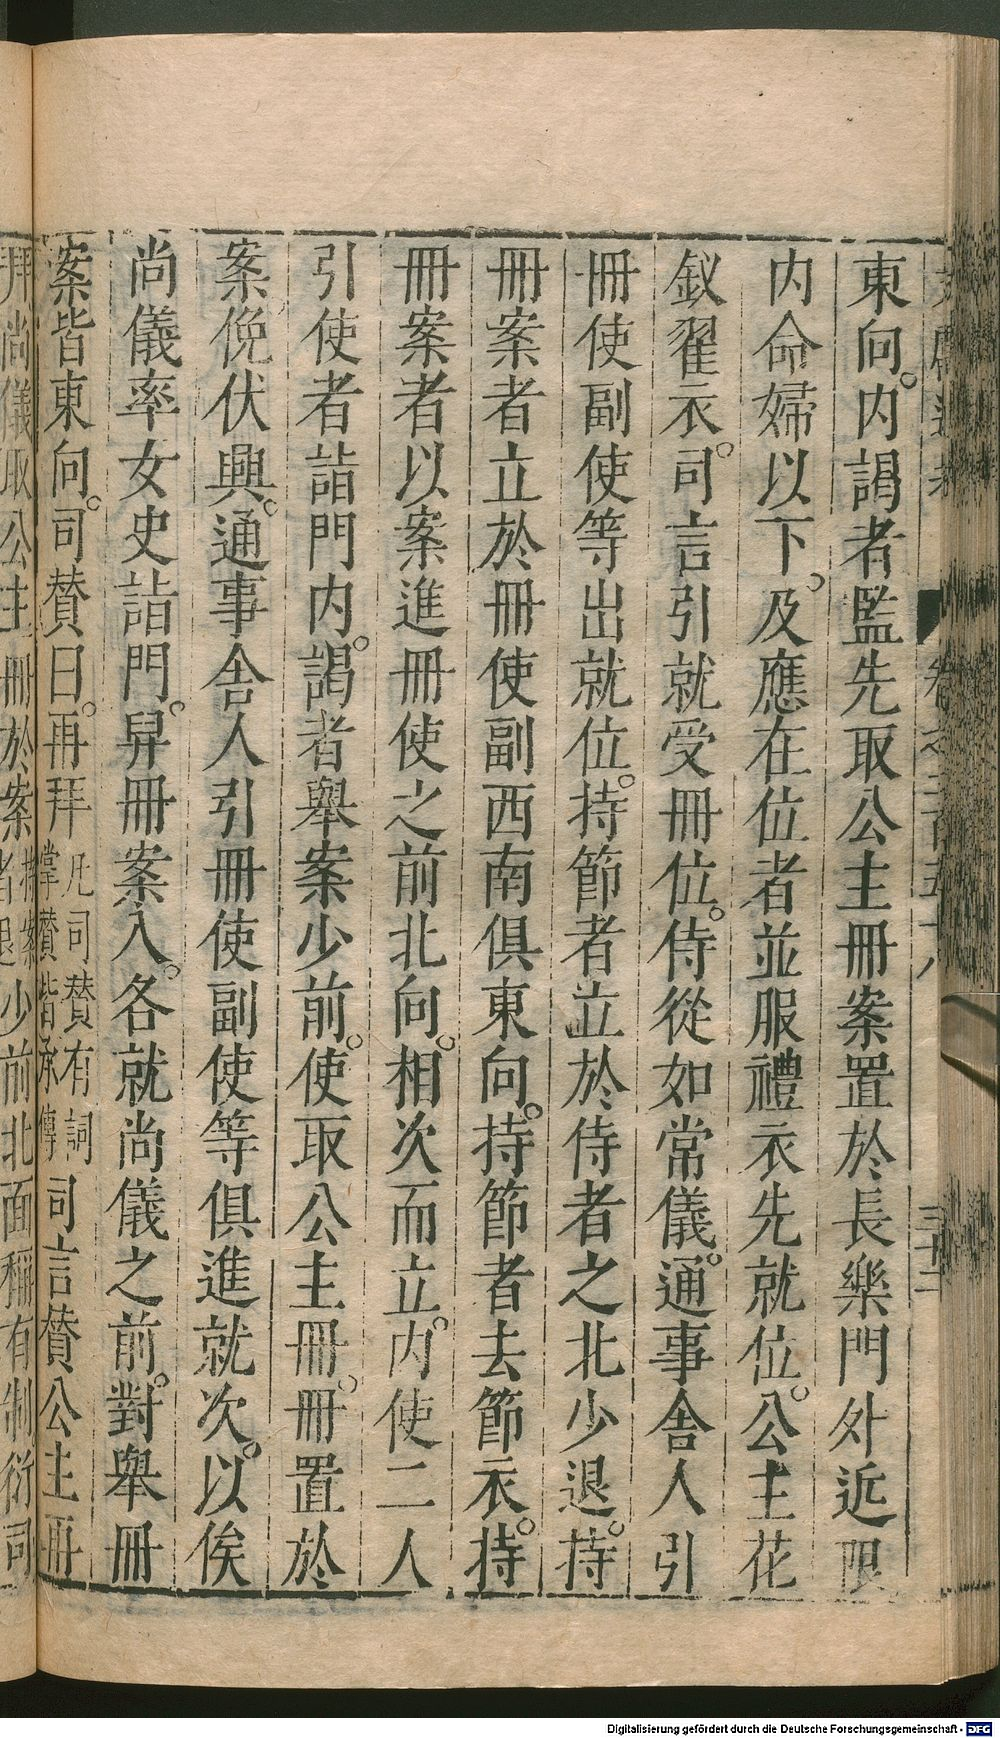 東向。内謁者監先取公主冊案置於長樂門外近限
内命婦以下。及應在位者並服禮衣先就位。公主花
釵翟衣。司言引就受冊位。侍從如常儀。通事舍人引
冊使副使等出就位。持節者立於侍者之北少退。持
冊案者立於冊使副西南俱東向。持節者去節衣。持
冊案者以案進冊使之前北向。相次而立。内使二人
引使者詣門内。謁者舉案少前。使取公主冊。冊置於
案俛伏興。通事舍人引冊使副使等俱進就次。以俟
尚儀率女史詣門。舁冊案入。各就尚儀之前。對舉冊
案皆東向。司贊曰。再拜凡司贊有詞掌贊皆承傳司言贊公主再
拜尚儀取公主冊於案持案者退少前北面稱有制衍司
卷之二百五十八
Digitalisierung gefördert durch die Deutsche Forschungsgemeinschaft - DFG